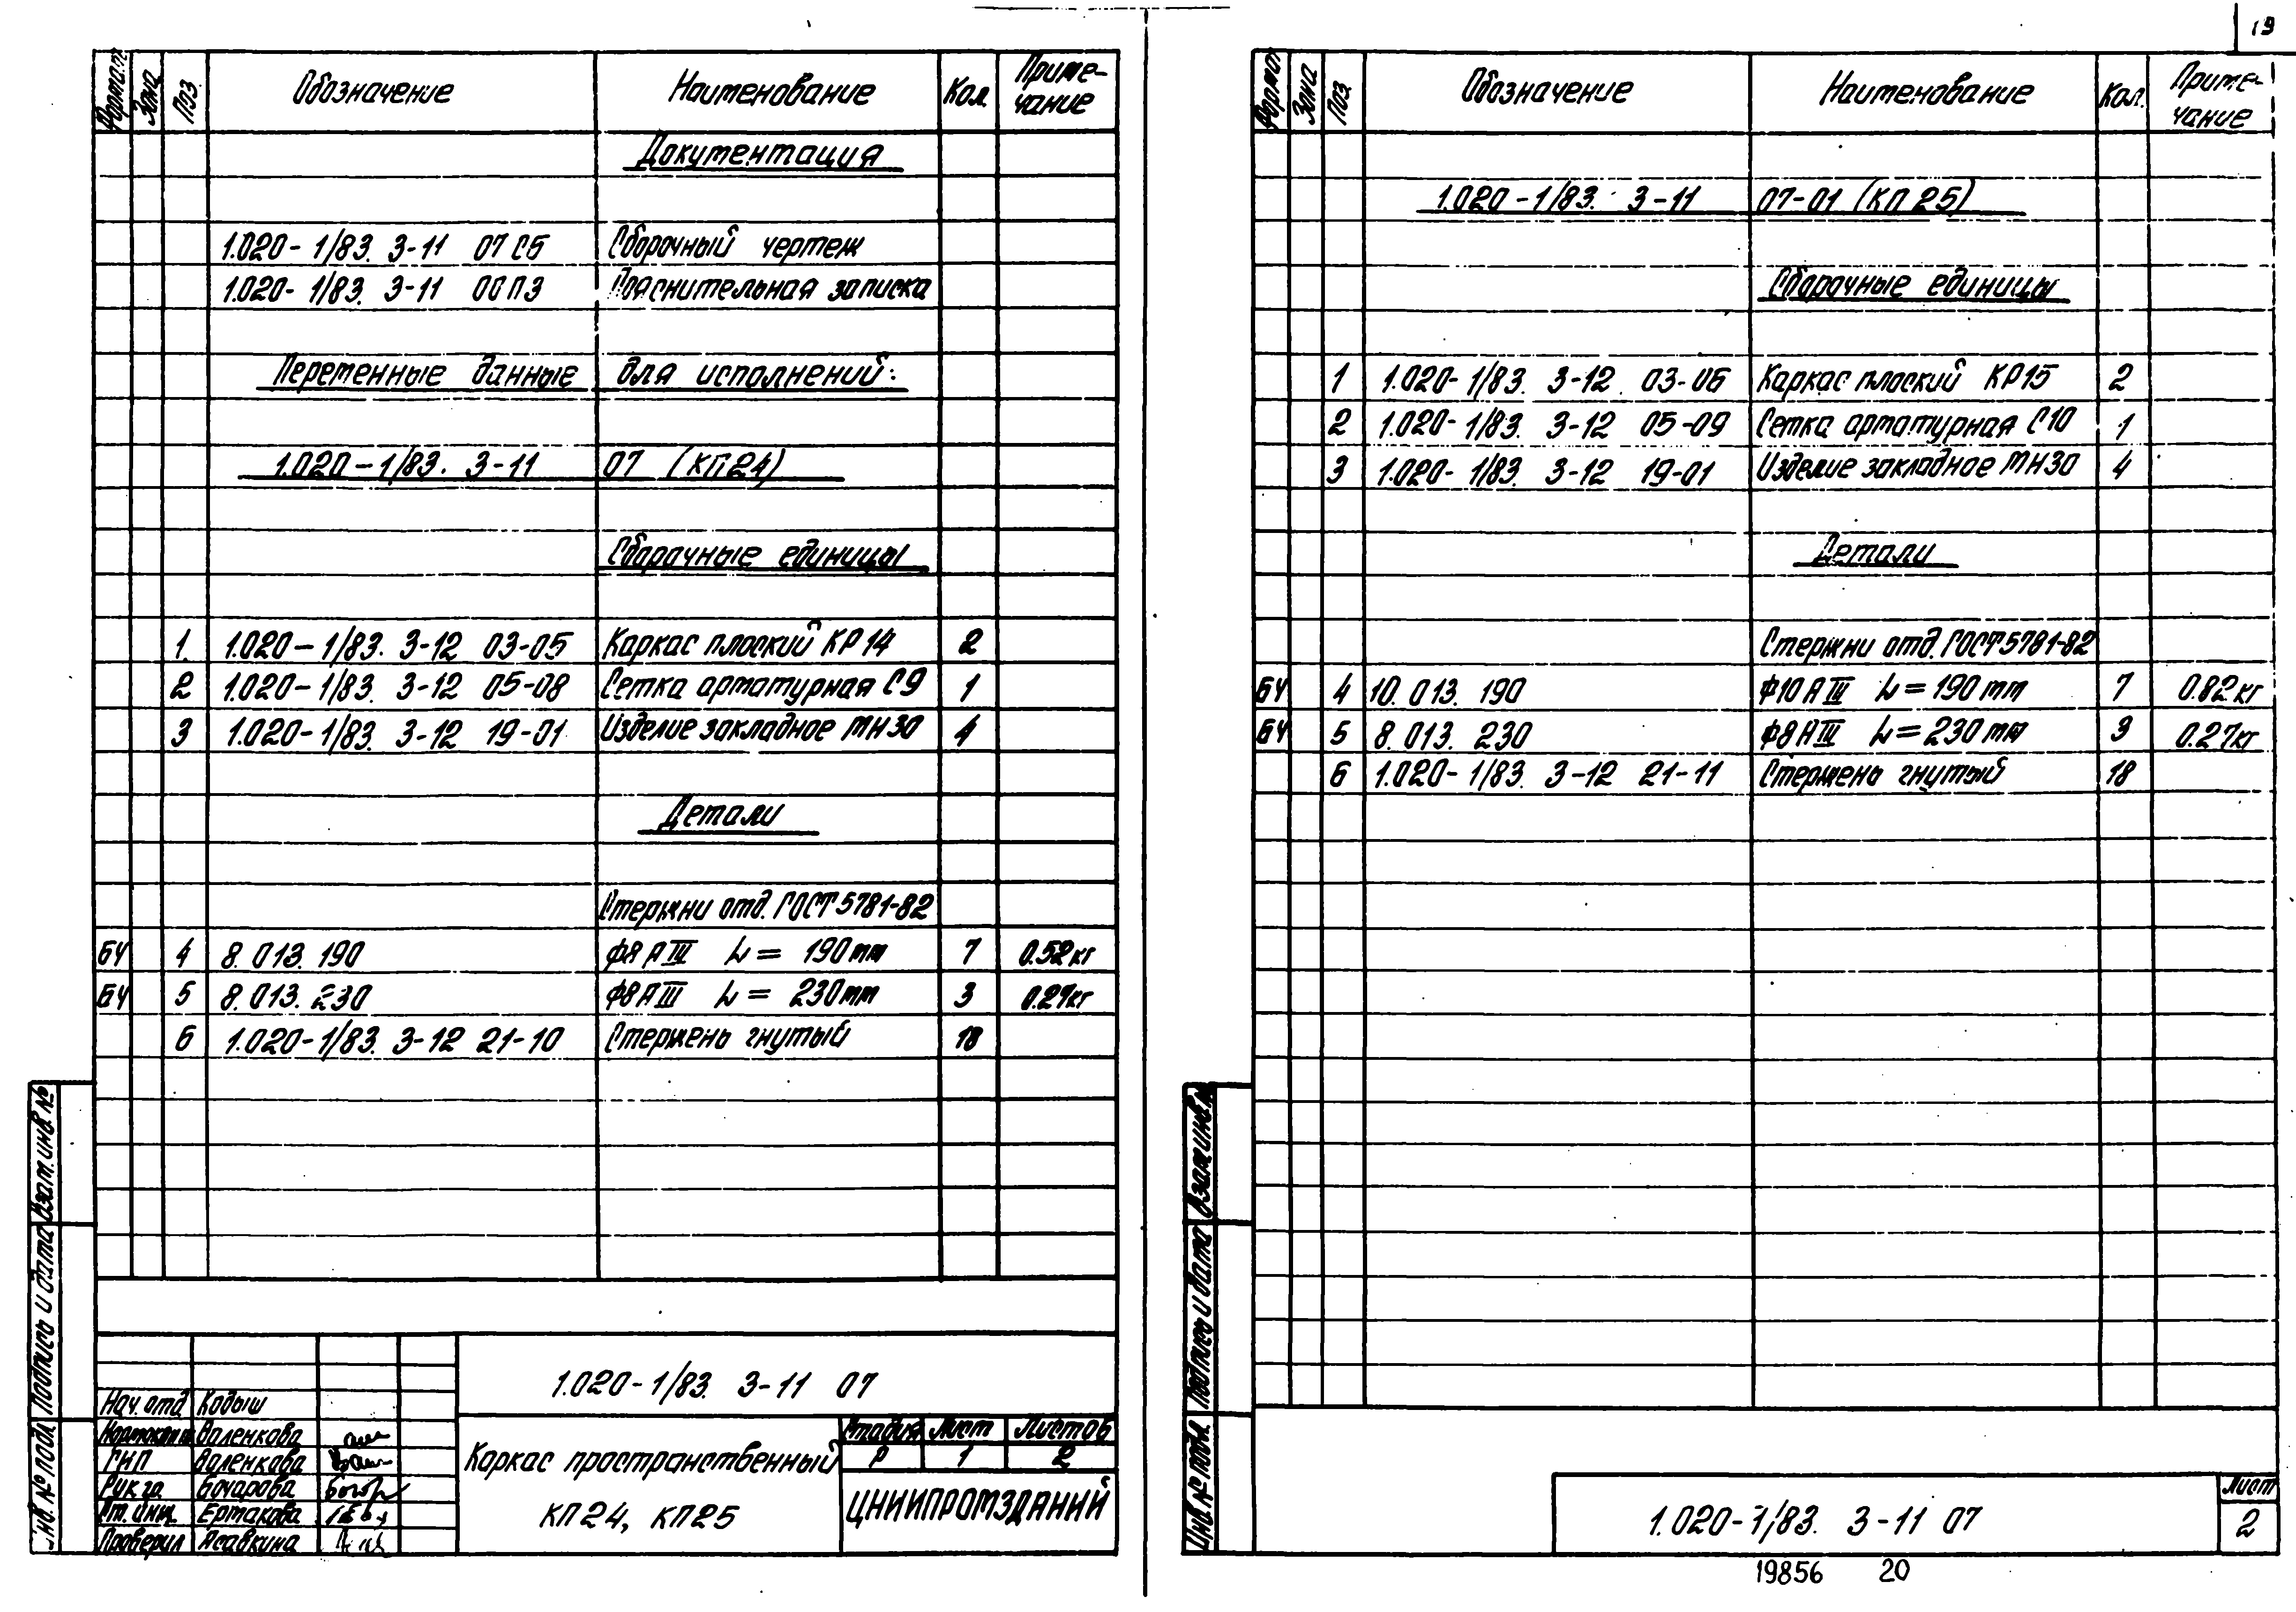 19
Формат Зона Поз. Обозначение Наименование Кол. Приме-
чание
Документация
1.020-1/83. 3-11 07 СБ Сборочный чертеж
1.020-1/83. 3-11 00 ПЗ Пояснительная записка
Переменные данные для исполнений:
1.020-1/83. 3-11 07 (КП24)
Сборочные единицы
1. 1.020-1/83. 3-12 03-05 Каркас плоский КР14 2
2 1.020-1/83. 3-12 05-08 Сетка арматурная С9 1
3 1.020-1/83. 3-12 19-01 Изделие закладное МН30 4
Детали
Стержни отд. ГОСТ 5781-82
БЧ 4 8. 013. 190 Ф8АIII L= 190мм 7 0.52кг
БЧ 5 8. 013. 230 Ф8АIII L= 230мм 3 0.27кг
6 1.020-1/83. 3-12 21-10 Стержень гнутый 18
Взам. инв. №
Подпись и дата
Инв. № подл.
Нач. отд. Кодыш
Валенкова
ГИП Валенкова
Рук. гр. Бочарова
Ст. инж. Ермакова
Проверил
1.020-1/83. 3-11 07
Каркас пространственный
КП24, КП25
Стадия Лист Листов
Р 1 2
ЦНИИПРОМЗДАНИЙ
Формат Зона Поз. Обозначение Наименование Кол. Приме-
чание
1.020-1/83. 3-11 07-01 (КП25)
Сборочные единицы
1 1.020-1/83. 3-12 03-06 Каркас плоский КР15 2
2 1.020-1/83. 3-12 05-09 Сетка арматурная С10 1
3 1.020-1/83. 3-12 19-01 Изделие закладное МН30 4
Детали
Стержни отд. ГОСТ 5781-82
БЧ 4 10. 013. 190 Ф10АIII L=190мм 7 0.82кг
БЧ 5 8. 013. 230 Ф8АIII L=230мм 3 0.27кг
6 1.020-1/83 3-12 21-11 Стержень гнутый 18
Взам. инв. №
Подпись и дата
Инв. № подл.
1.020-1/83. 3-11 07
Лист
2
19856 20